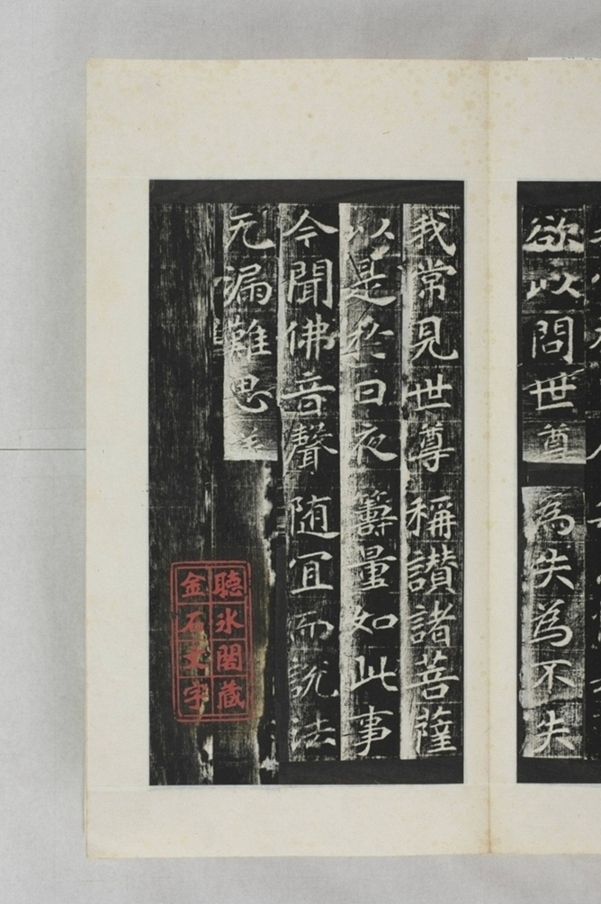 欲以問世尊 為失為不失
我常見世尊 稱讃諸菩薩
以是於日夜 籌量如此事
今聞佛音聲 随宜而說法
无漏難思
聽冰閣藏
金石文字